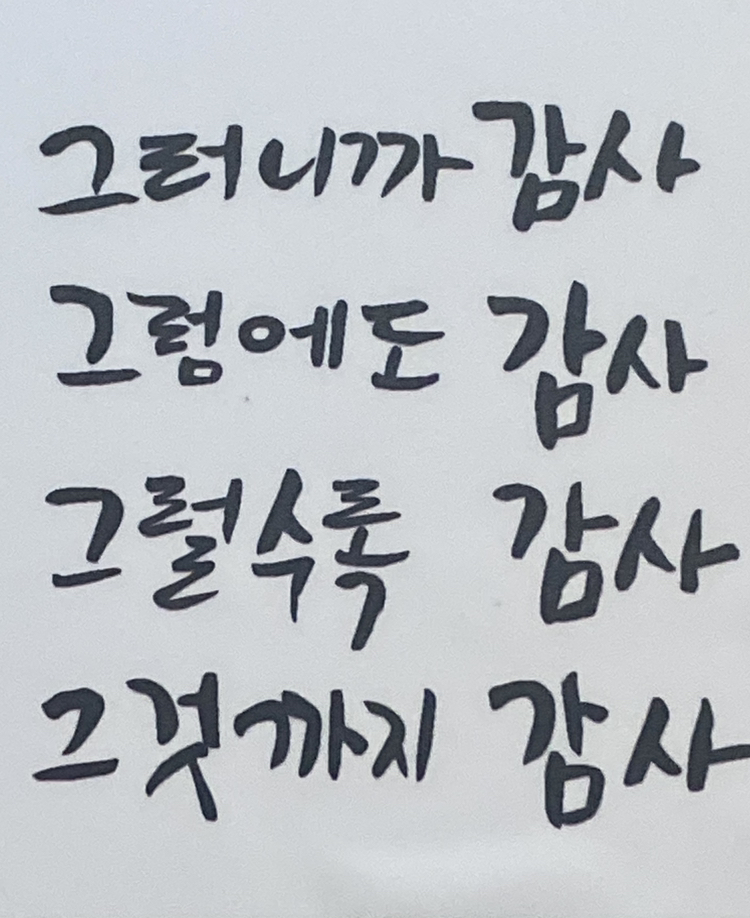 그러니까 감사
그럼에도 감사
그럴수록 감사
그것까지 감사